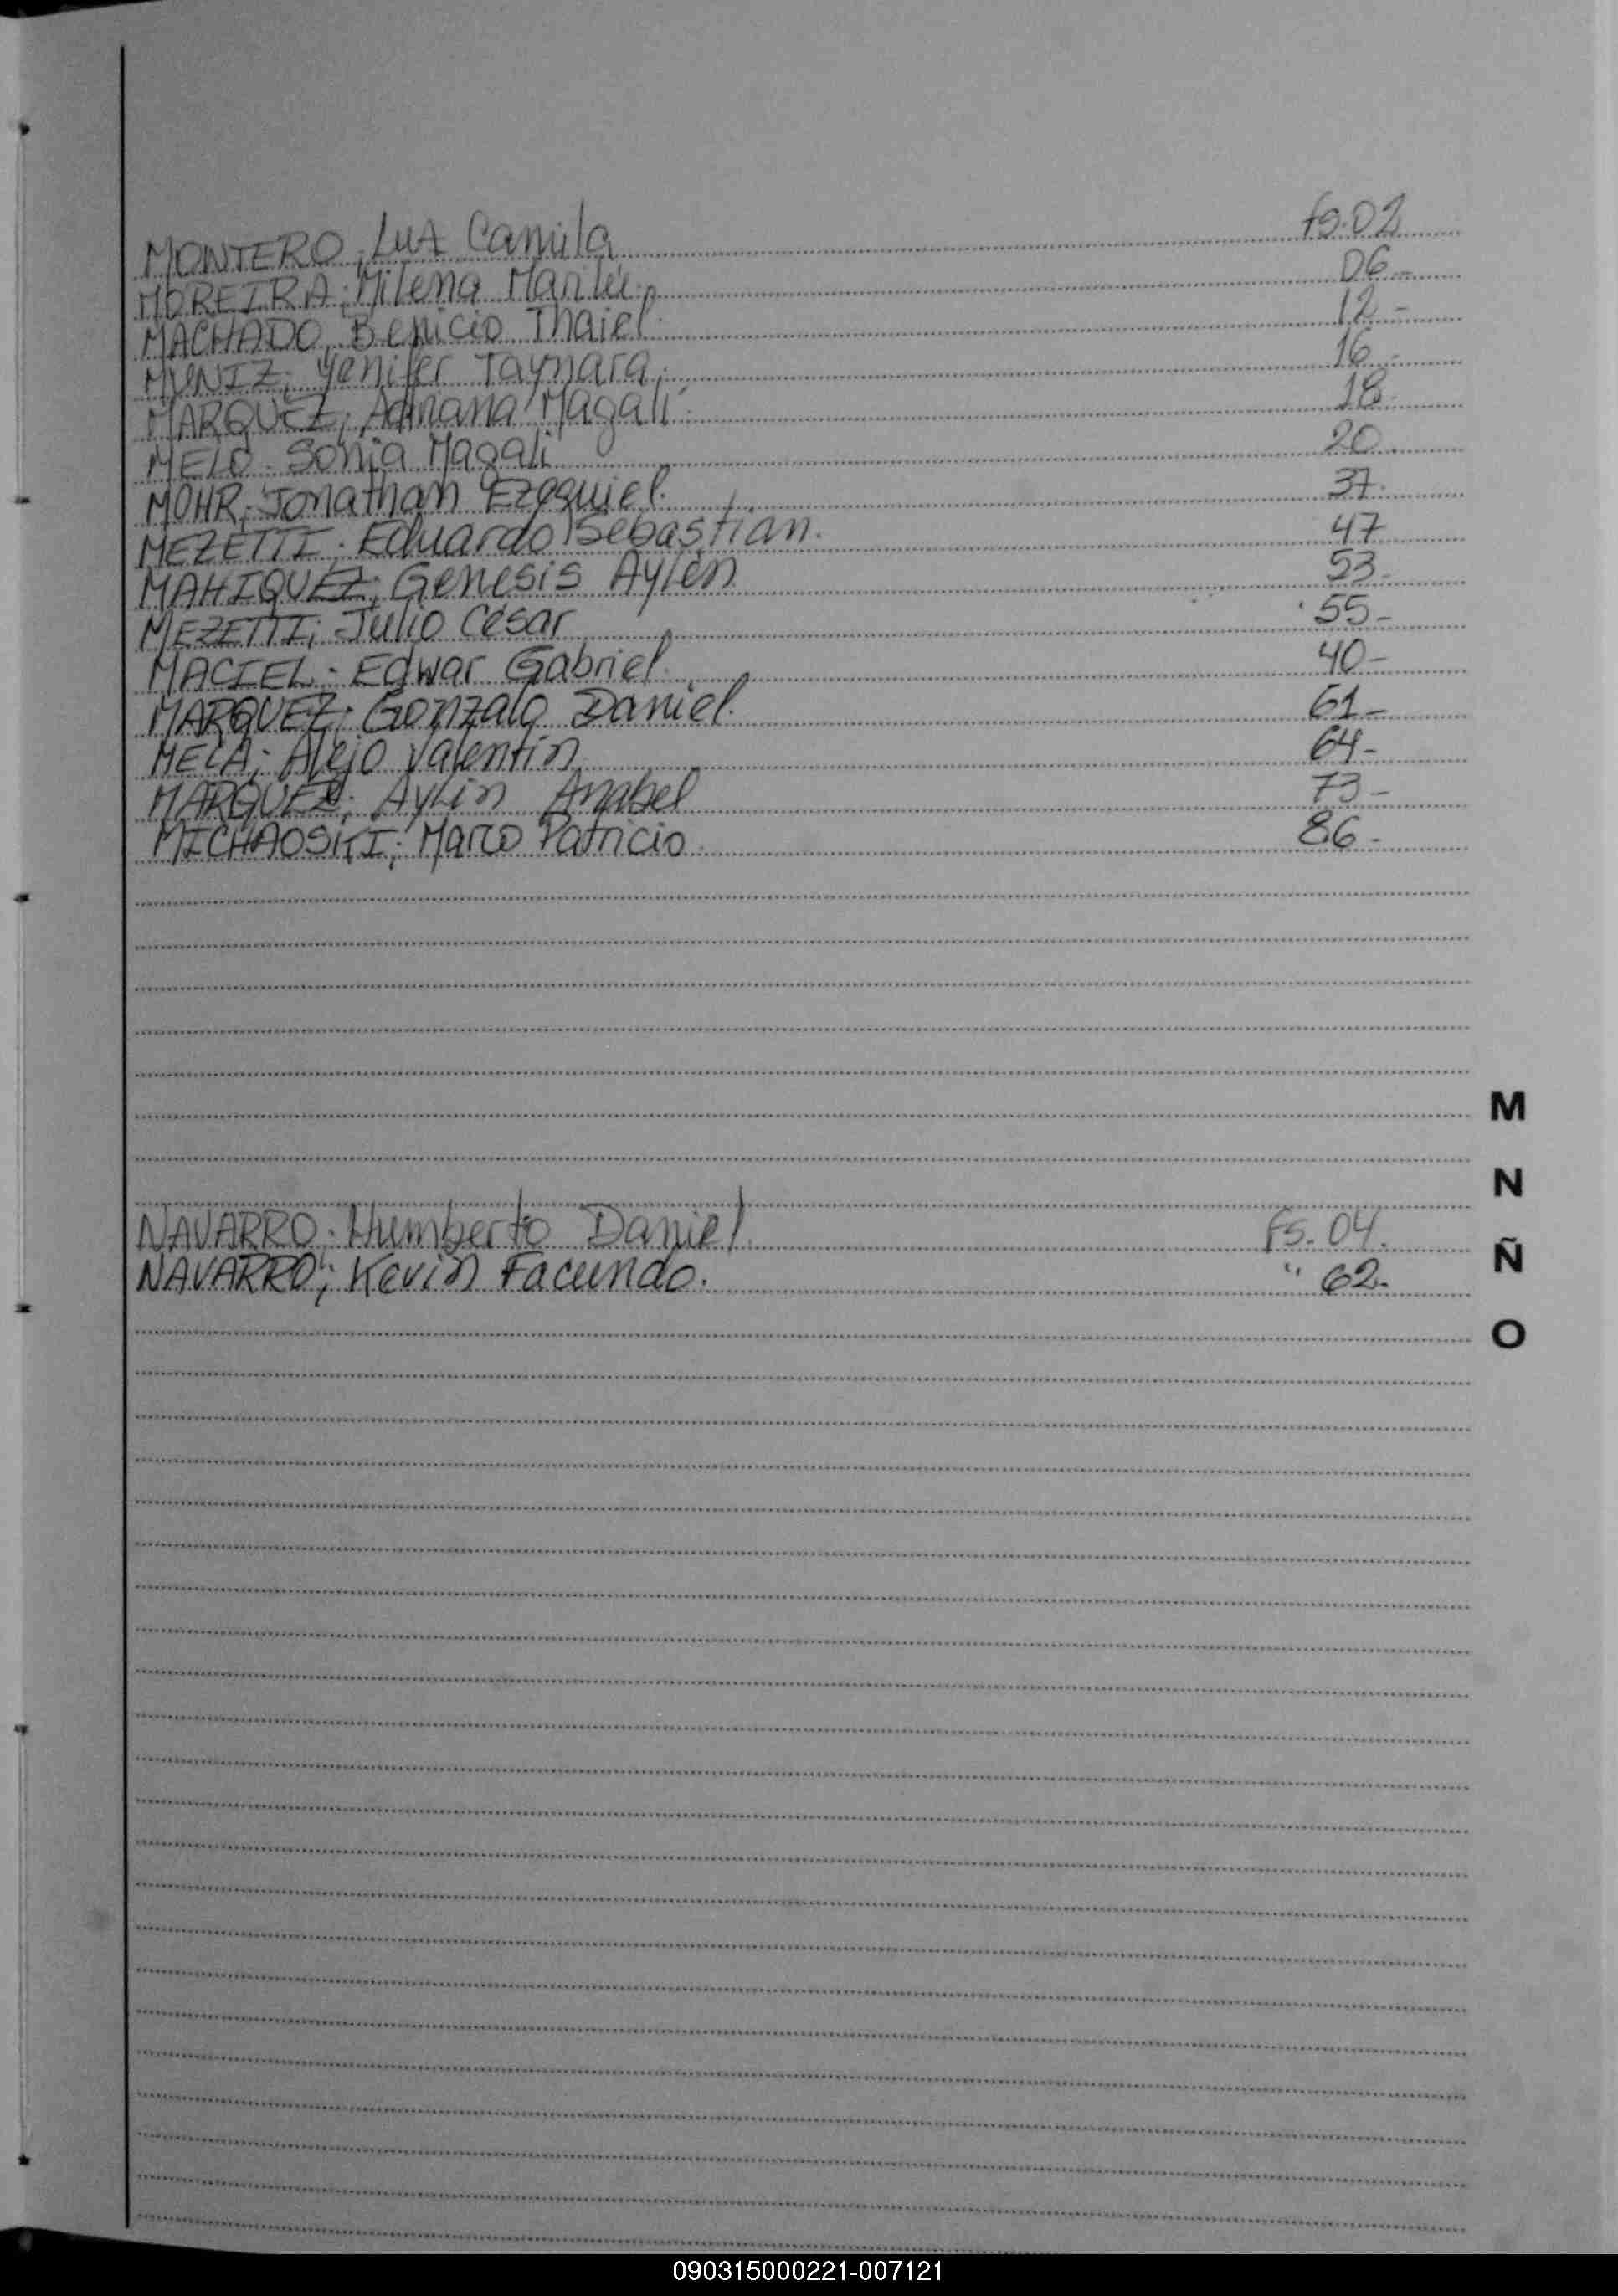 MONTERO; LUA Camila fs. 02
MOREIRA; Milena Marilú. 06 -
MACHADO, Benicio Thaiel. 12 -
MUNIZ; Yenifer Taynara. 16 -
MARQUEZ; Adriana Magalí. 18.
MELO - Sonia Magalí 20
MOHR; Jonathan Ezequiel. 37.
MEZETTI. Eduardo Sebastian. 47
MAHIQUEZ; Genesis Aylén 53 -
MEZETTI; Julio César 55 -
MACIEL - Edwar Gabriel. 40 -
MARQUEZ; Gonzalo Daniel. 61 -
MELA; Alejo Valentín 64 -
MARQUEZ; Aylin Anabel 73 -
MICHAOSKI; Marco Patricio 86 -
M
N
NAVARRO. Humberto Daniel. fs. 04.
Ñ
NAVARRO; Kevin Facundo. " 62.
O
090315000221-007121